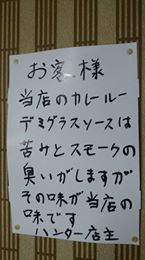 お客様
当店のカレールー
デミグラスソースは
苦みとスモークの
臭いがしますが
その味が当店の
味です
ハンター店主